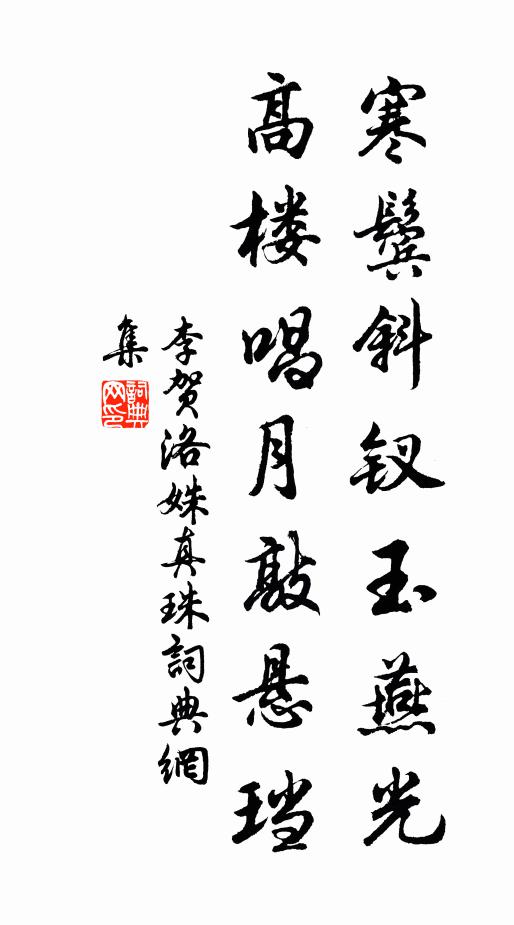 寒鬓斜钗玉燕光
高楼唱月敲悬珰
李贺洛姝真珠詞典網
集
詞典
网印